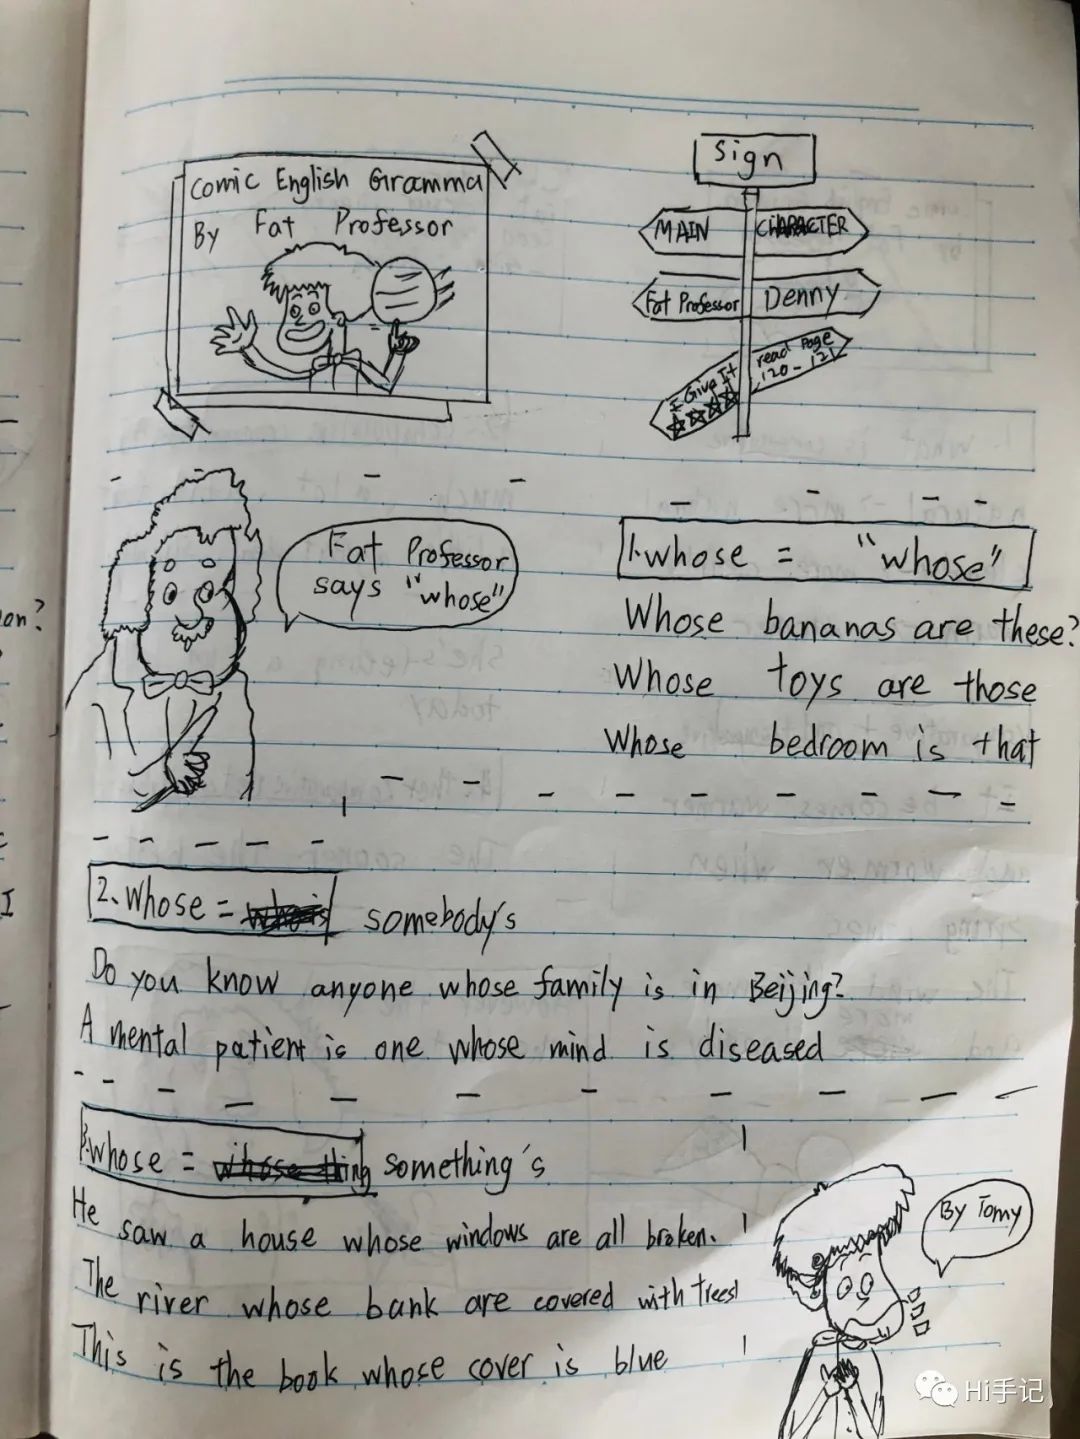 Comic English Gramma
By Fat Professor
Sign
MAIN CHARACTER
Fat Professor Denny
I Give It
read Page
120-121
Fat Professor
says "whose"
1.whose = "whose"
Whose bananas are these?
Whose toys are those
Whose bedroom is that
2.Whose = somebody's
Do you know anyone whose family is in Beijing?
A mental patient is one whose mind is diseased
3.whose = whose thing something's
He saw a house whose windows are all broken.
The river whose bank are covered with trees
This is the book whose cover is blue
By Tomy
I
Hi手记